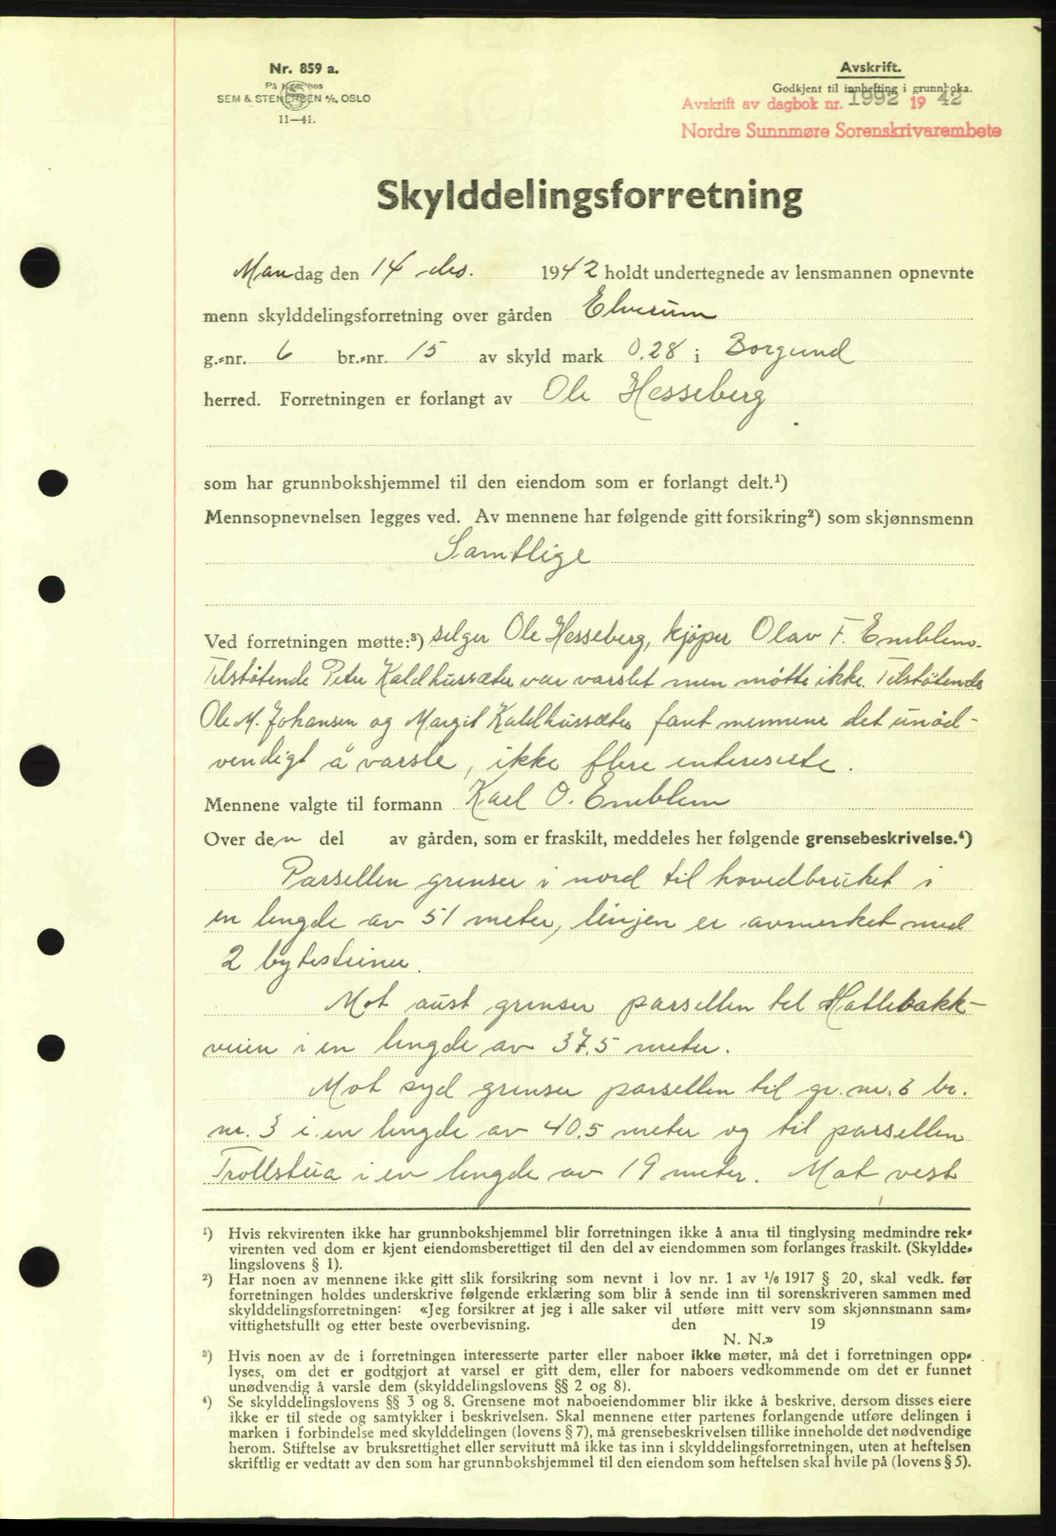 Nr. 859 a.
På lager hos
SEM & STENERSEN A/S, OSLO
11—41.
Avskrift.
Godkjent til innhefting i grunnboka.
Avskrift av dagbok nr. 1992 19 42
Nordre Sunnmøre Sorenskrivarembete
Skylddelingsforretning
Mandag den 14 des. 1942 holdt undertegnede av lensmannen opnevnte
menn skylddelingsforretning over gården Elverum
g.-nr. 6 br.-nr. 15 av skyld mark 0.28 i Borgund
herred. Forretningen er forlangt av Ole Hesseberg
som har grunnbokshjemmel til den eiendom som er forlangt delt.¹)
Mennsopnevnelsen legges ved. Av mennene har følgende gitt forsikring²) som skjønnsmenn
Samtlige
Ved forretningen møtte:³) selger Ole Hesseberg, kjøper Olav F. Emblem.
Tilstøtende Peter Kaldhussæter var varslet men møtte ikke. Tilstøtende
Ole M. Johansen og Margit Kaldhussæter fant mennene det unød-
vendigt å varsle, ikke flere interesserte.
Mennene valgte til formann Karl O. Emblem
Over den del av gården, som er fraskilt, meddeles her følgende grensebeskrivelse.⁴)
Parsellen grenser i nord til hovedbruket i
en lengde av 51 meter, linjen er avmerket med
2 bytesteiner.
Mot aust grenser parsellen til Hatlebakk-
veien i en lengde av 37.5 meter.
Mot syd grenser parsellen til gr. nr. 6 br.
nr. 3 i en lengde av 40.5 meter og til parsellen
Trollstua i en lengde av 19 meter. Mot vest
¹) Hvis rekvirenten ikke har grunnbokshjemmel blir forretningen ikke å anta til tinglysing medmindre rek-
virenten ved dom er kjent eiendomsberettiget til den del av eiendommen som forlanges fraskilt. (Skyldde-
lingslovens § 1).
²) Har noen av mennene ikke gitt slik forsikring som nevnt i lov nr. 1 av 1/6 1917 § 20, skal vedk. før
forretningen holdes underskrive følgende erklæring som blir å sende inn til sorenskriveren sammen med
skylddelingsforretningen: «Jeg forsikrer at jeg i alle saker vil utføre mitt verv som skjønnsmann sam-
vittighetsfullt og etter beste overbevisning. den 19
N. N.»
³) Hvis noen av de i forretningen interesserte parter eller naboer ikke møter, må det i forretningen opp-
lyses, om det er godtgjort at varsel er gitt dem, eller for naboers vedkommende om det er funnet
unødvendig å varsle dem (skylddelingslovens §§ 2 og 8).
⁴) Se skylddelingslovens §§ 3 og 8. Grensene mot naboeiendommer blir ikke å beskrive, dersom disses eiere
ikke er til stede og samtykker i beskrivelsen. Skal mennene etter partenes forlangende utføre delingen i
marken i forbindelse med skylddelingen (lovens § 7), må grensebeskrivelsen tillike inneholde det nødvendige
herom. Stiftelse av bruksrettighet eller servitutt må ikke tas inn i skylddelingsforretningen, uten at heftelsen
skriftlig er vedtatt av den som har grunnbokshjemmel til den eiendom som heftelsen skal hvile på (lovens § 5).